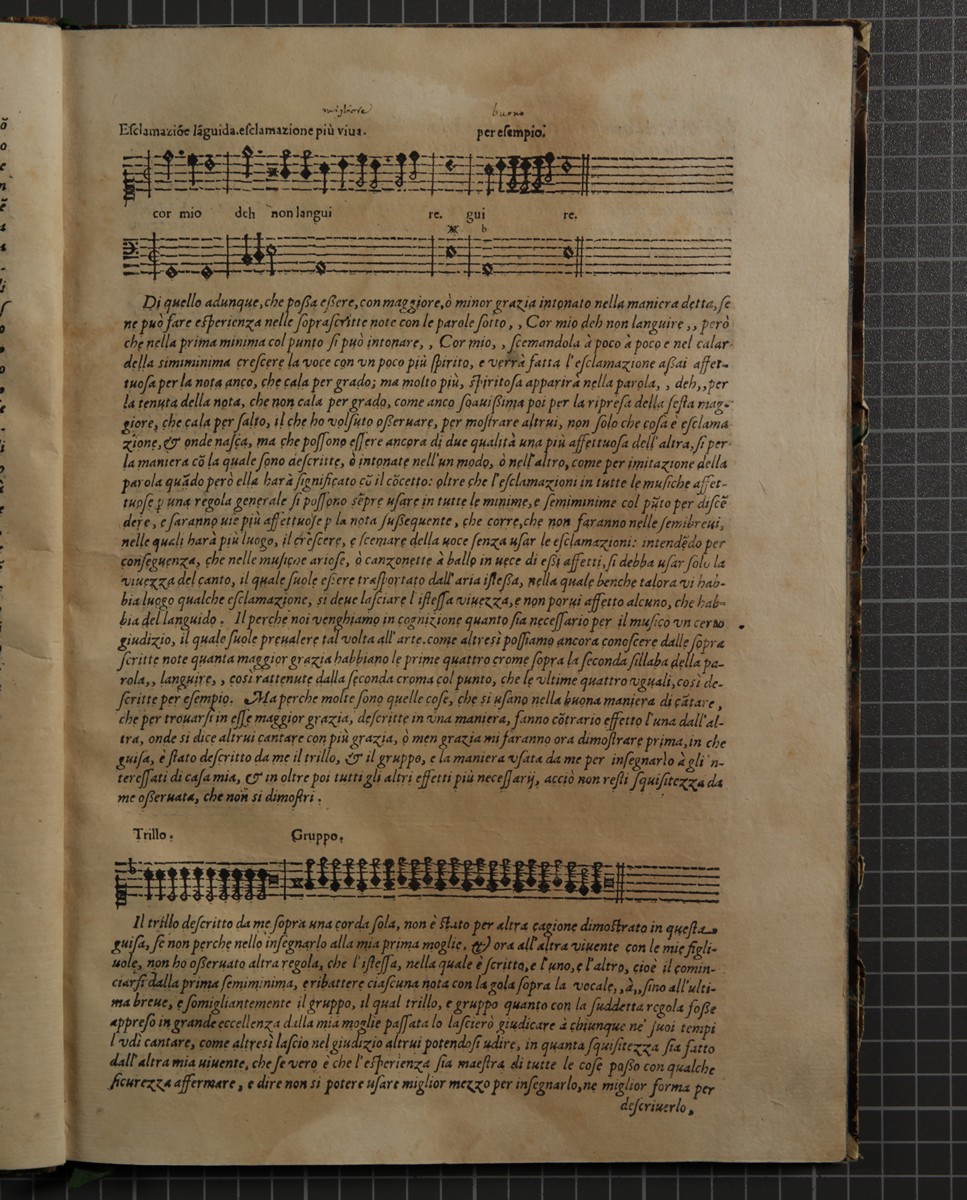 migliore buono
Eſclamaziõe lãguida. eſclamazione più viua. per eſempio.
cor mio deh non langui re. gui re.
b
Di quello adunque, che poſſa eſſere, con maggiore, ò minor grazia intonato nella maniera detta, ſe
ne può fare eſperienza nelle ſopraſcritte note con le parole ſotto , , Cor mio deh non languire ,, però
che nella prima minima col punto ſi può intonare, , Cor mio, , ſcemandola à poco a poco e nel calar
della ſimiminima creſcere la voce con vn poco più ſpirito, e verrà fatta l'eſclamazione aſſai affet-
tuoſa per la nota anco, che cala per grado; ma molto più, ſpiritoſa apparirà nella parola, , deh,, per
la tenuta della nota, che non cala per grado, come anco ſoauiſſima poi per la ripreſa della ſeſta mag-
giore, che cala per ſalto, il che ho volſuto oſſeruare, per moſtrare altrui, non ſolo che coſa è eſclama
zione, & onde naſca, ma che poſſono eſſere ancora di due qualità una più affettuoſa dell'altra, ſi per
la maniera cõ la quale ſono deſcritte, ò intonate nell'un modo, ò nell'altro, come per imitazione della
parola quãdo però ella harà ſignificato cõ il cõcetto: oltre che l'eſclamazioni in tutte le muſiche affet-
tuoſe p una regola generale ſi poſſono sẽpre uſare in tutte le minime, e ſemiminime col pũto per diſcẽ
dere, e faranno uie più affettuoſe p la nota ſuſſequente, che corre, che non faranno nelle ſemibreui,
nelle quali harà più luogo, il creſcere, e ſcemare della uoce ſenza uſar le eſclamazioni: intendẽdo per
conſeguenza, che nelle muſiche arioſe, ò canzonette à ballo in uece di eſſi affetti, ſi debba uſar ſolo la
viuezza del canto, il quale ſuole eſſere traſportato dall'aria iſteſſa, nella quale benche talora vi hab-
bia luogo qualche eſclamazione, si deue laſciare l'iſteſſa viuezza, e non porui affetto alcuno, che hab-
bia del languido . Il perche noi venghiamo in cognizione quanto ſia neceſſario per il muſico vn certo
giudizio, il quale ſuole preualere tal volta all'arte. come altresì poſſiamo ancora conoſcere dalle ſopra
ſcritte note quanta maggior grazia habbiano le prime quattro crome ſopra la ſeconda ſillaba della pa-
rola,, languire, , così rattenute dalla ſeconda croma col punto, che le vltime quattro vguali, così de-
ſcritte per eſempio. Ma perche molte ſono quelle coſe, che si uſano nella buona maniera di cãtare,
che per trouarſi in eſſe maggior grazia, deſcritte in vna maniera, fanno cõtrario effetto l'una dall'al-
tra, onde si dice altrui cantare con più grazia, ò men grazia mi faranno ora dimoſtrare prima, in che
guiſa, è ſtato deſcritto da me il trillo, & il gruppo, e la maniera vſata da me per inſegnarlo à gli 'n-
tereſſati di caſa mia, & in oltre poi tutti gli altri effetti più neceſſarij, acciò non reſti ſquiſitezza da
me oſſeruata, che non si dimoſtri .
Trillo. Gruppo.
Il trillo deſcritto da me ſopra una corda ſola, non è ſtato per altra cagione dimoſtrato in queſta
guiſa, ſe non perche nello inſegnarlo alla mia prima moglie, & ora all'altra viuente con le mie figli-
uole, non ho oſſeruato altra regola, che l'iſteſſa, nella quale è ſcritto, e l'uno, e l'altro, cioè il comin-
ciarſi dalla prima ſemiminima, e ribattere ciaſcuna nota con la gola ſopra la vocale,,à,, ſino all'ulti-
ma breue, e ſomigliantemente il gruppo, il qual trillo, e gruppo quanto con la ſuddetta regola foſſe
appreſo in grande eccellenza dalla mia moglie paſſata lo laſcierò giudicare à chiunque ne' ſuoi tempi
l'vdì cantare, come altresì laſcio nel giudizio altrui potendoſi udire, in quanta ſquiſitezza ſia fatto
dall'altra mia uiuente, che ſe vero è che l'eſperienza ſia maeſtra di tutte le coſe poſſo con qualche
ſicurezza affermare, e dire non si potere uſare miglior mezzo per inſegnarlo, ne miglior forma per
deſcriuerlo,